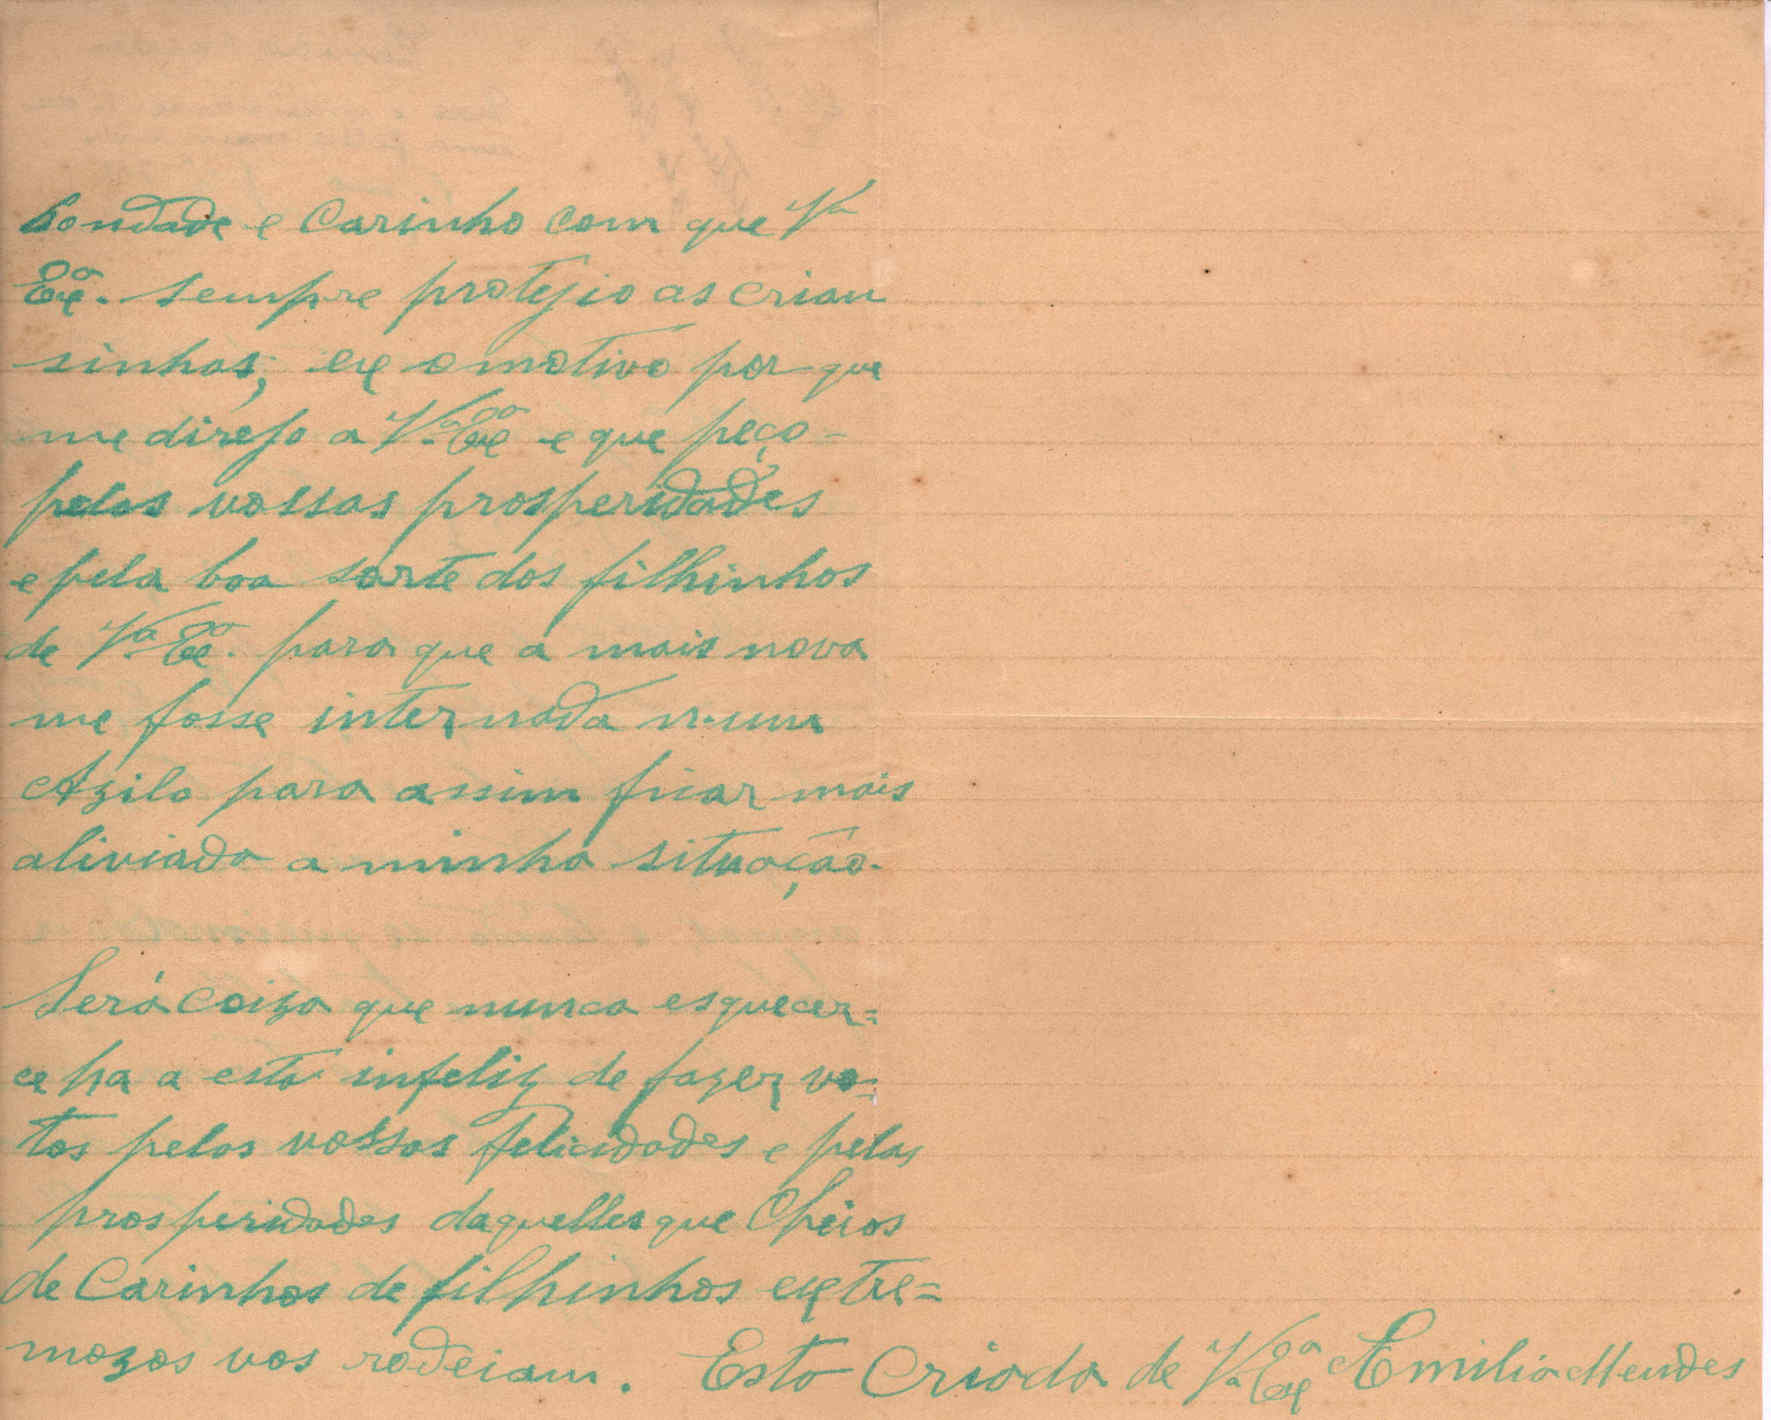 bondade e Carinho com que Vª
Exª. sempre protejio as crian
sinhas; ex o motivo por que
me direjo a Vª Exª e que peço-
pelas vossas prosperidades
e pela boa sorte dos filhinhos
de Vª Exª. para que a mais nova
me fosse internada n-um
Azilo para assim ficar mais
aliviada a minha situação.
Será coiza que nunca esquecer=
ce ha a esta infeliz de fazer vo=
tos pelas vossas felicidades e pelas
prosperidades daquelles que Cheios
de Carinhos de filhinhos extre=
mozos vos rodeiam. Esta Criada de Vª Exª Emilia Mendes